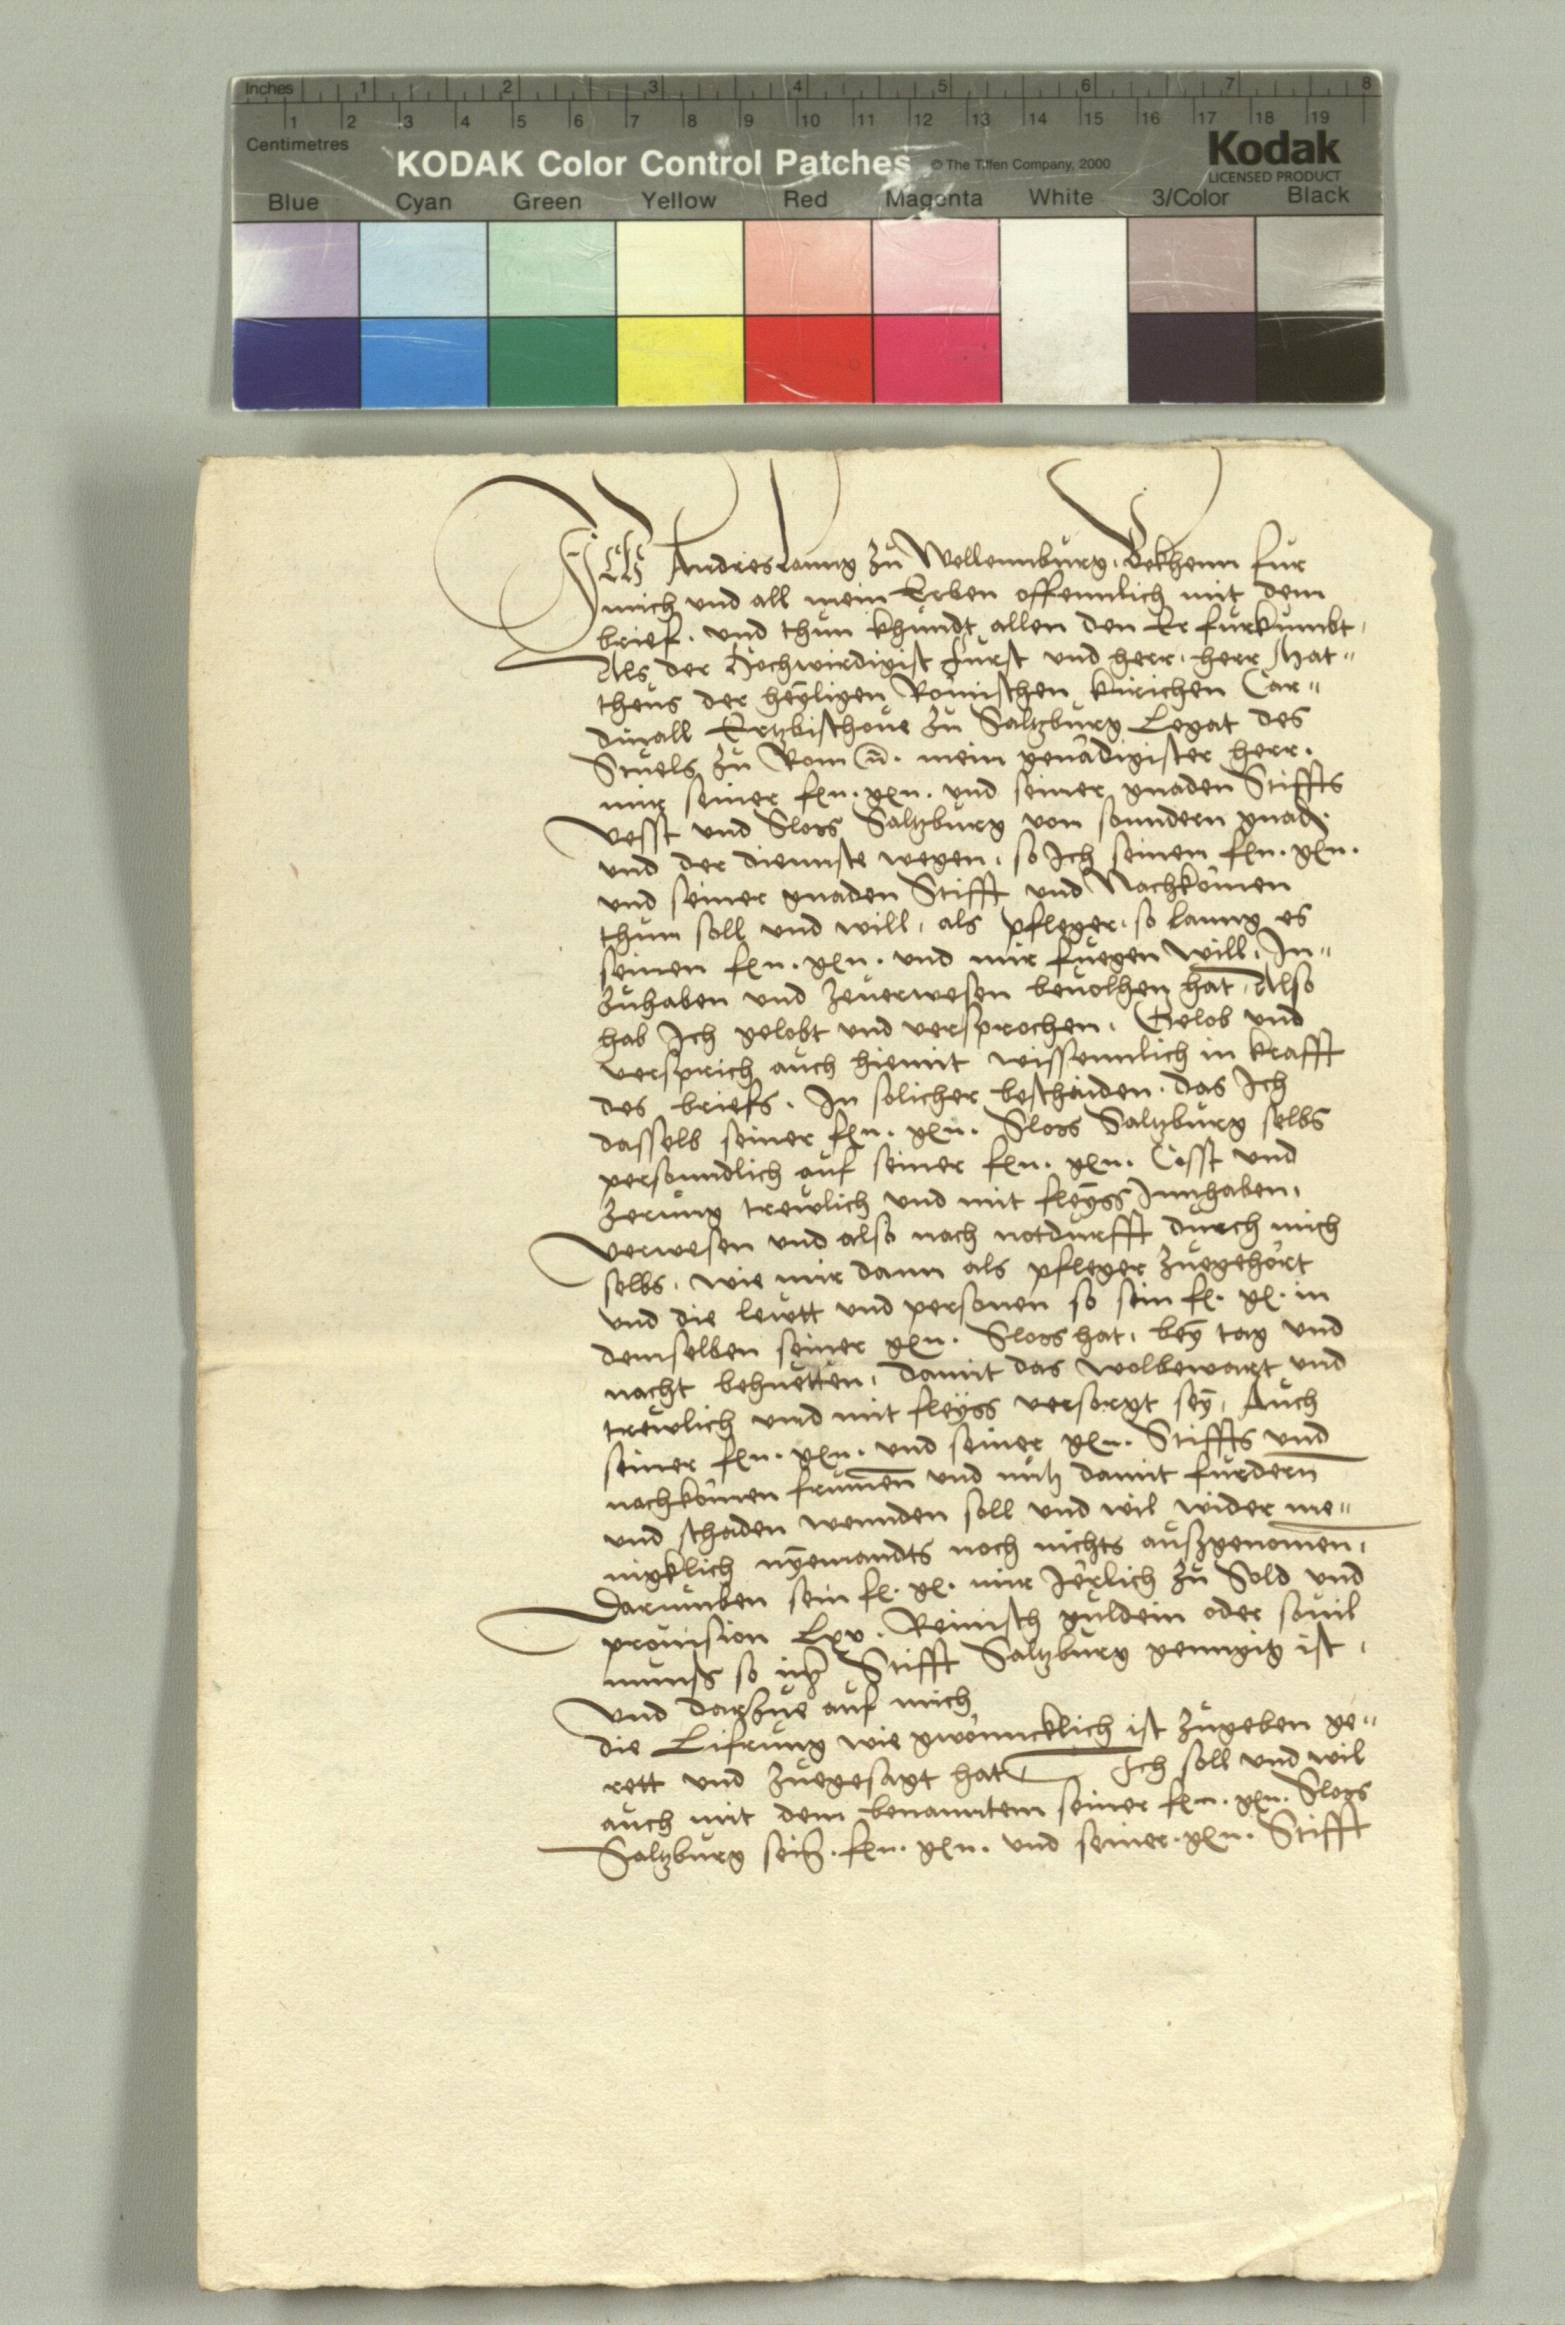 Inches 1 2 3 4 5 6 7 8
1 2 3 4 5 6 7 8 9 10 11 12 13 14 15 16 17 18 19
Centimetres
KODAK Color Control Patches © The Tiffen Company, 2000 Kodak
LICENSED PRODUCT
Blue Cyan Green Yellow Red Magenta White 3/Color Black
Ich Andreslanng zu Wellennburg. Bekhenn für
mich vnd all mein Erben offennlich mit dem
brief. vnd thun khundt allen den Er furkumbt.
Als der Hochwirdigist Furst vnd herr. herr Mat=
theus der heyligen Römischen kirichen Car=
dinall Ertzbischoue zu Saltzburg Legat des
Stuels zu Rom ꝛc. mein genädigister herr.
mir seiner f(n. g(n. vnd seiner gnaden Stiffts
vesst vnd Sloss Saltzburg von sonndern gnad(
vnd der diennste wegen. so Ich seinen f(n. g(n.
vnd seiner gnaden Stifft vnd Nachkomen
thun soll vnd will, als pfleger. so lanng es
seinen f(n. g(n. vnd mir fuegen will. In=
zuhaben vnd zeuerwesen beuolhen hat, Also
hab Ich gelobt vnd versprochen. Gelob vnd
versprich auch hiemit wissenntlich in krafft
des briefs. In solicher beschaiden. das Ich
dasselb seiner f(n. g(n. Sloss Saltzburg selbs
personndlich auf seiner f(n. g(n. Cosst vnd
zerung trewlich vnd mit fleyss Innhaben,
verwesen vnd also nach notdurfft durch mich
selbs. wie mir dann als pfleger zuegehört
vnd die lewtt vnd personen so sein f(. g(. in
demselben seiner g(n. Sloss hat, bey tag vnd
nacht behuetten, damit das wolbewart vnd
trewlich vnd mit fleyss versorgt sey, Auch
seiner f(n. g(n. vnd seiner g(n. Stiffts vnd
nachkomen frumen vnd nutz damit furdern
vnd schaden wennden soll vnd wil wider me=
nigklich nyemandts noch nichts außgenomen,
Darumben sein f(. g(. mir Jerlich zu Sold vnd
prouision Lxv. Reinisch guldein oder souil
munss so im Stifft Saltzburg genngig ist,
Vnd darzue auf mich
die Lifrung wie gwonncklich ist zugeben ge=
rett vnd zuegesagt hat Ich soll vnd wil
auch mit dem benanntem seiner f(n. g(n. Sloss
Saltzburg sein. f(n. g(n. vnd seiner. g(n. Stifft